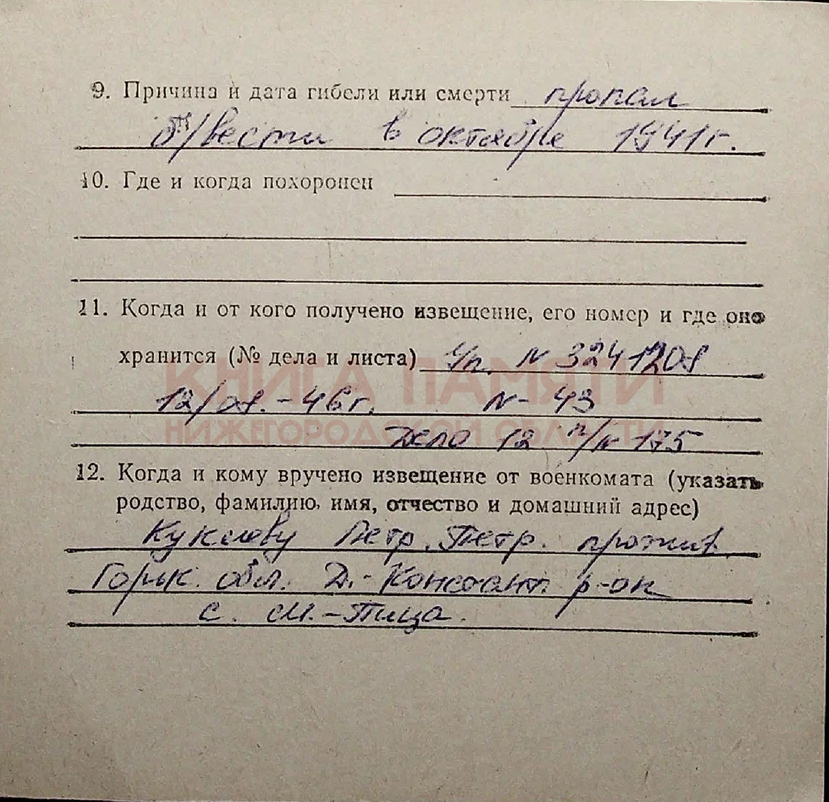 9. Причина и дата гибели или смерти пропал
б/вести в октябре 1941г.
10. Где и когда похоронен
11. Когда и от кого получено извещение, его номер и где оно
хранится (№ дела и листа) Уп. N 3241208
КНИГА ПАМЯТИ
12/08.-46г. N-43
НИЖЕГОРОДСКОЙ ОБЛАСТИ
Дело 12 п/н 175
12. Когда и кому вручено извещение от военкомата (указать
родство, фамилию, имя, отчество и домашний адрес)
Петр. Петр. прожив.
Горьк. обл. Д.-Констант. р-он
с. М.-Пица.